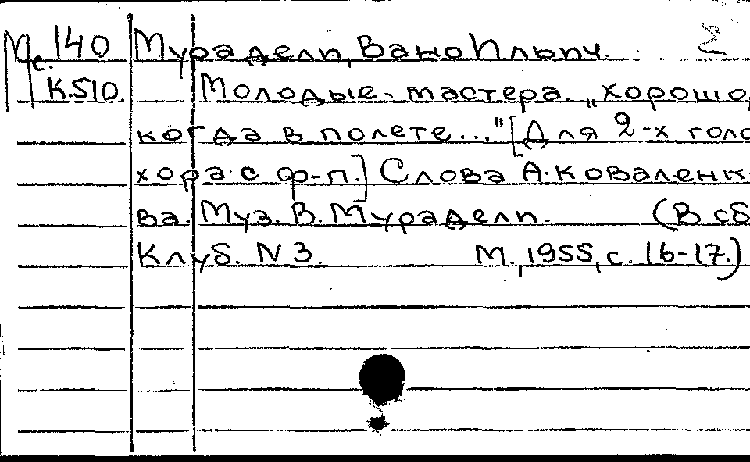 Мс. 140 Мурадели, Вано Ильич. 2
К.510. Молодые мастера. „Хорошо,
когда в полете..." [Для 2-х голо
хора с ф-п.] Слова А. Коваленк
ва. Муз. В. Мурадели. (В сб
Клуб. N 3. М., 1955, с. 16-17.)